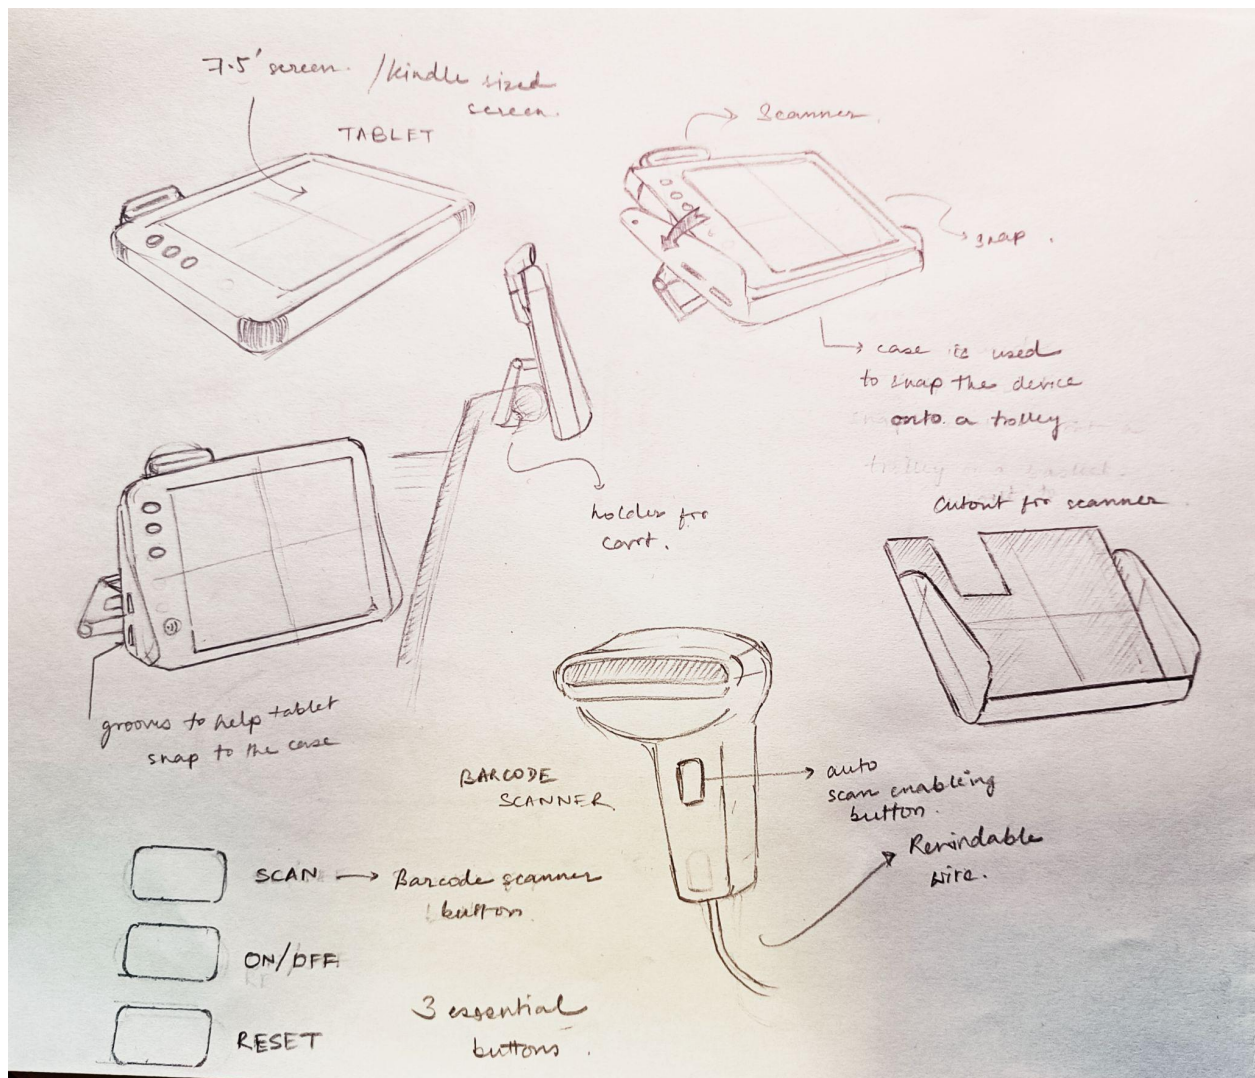 7.5' screen. /kindle sized
screen.
TABLET
Scanner.
snap.
case is used
to snap the device
onto a trolley
trolley or a basket.
holder for
cart.
Cutout for scanner
grooves to help tablet
snap to the case
BARCODE
SCANNER.
auto
scan enabling
button.
Rewindable
wire.
SCAN → Barcode scanner
button
ON/OFF
RESET
3 essential
buttons.